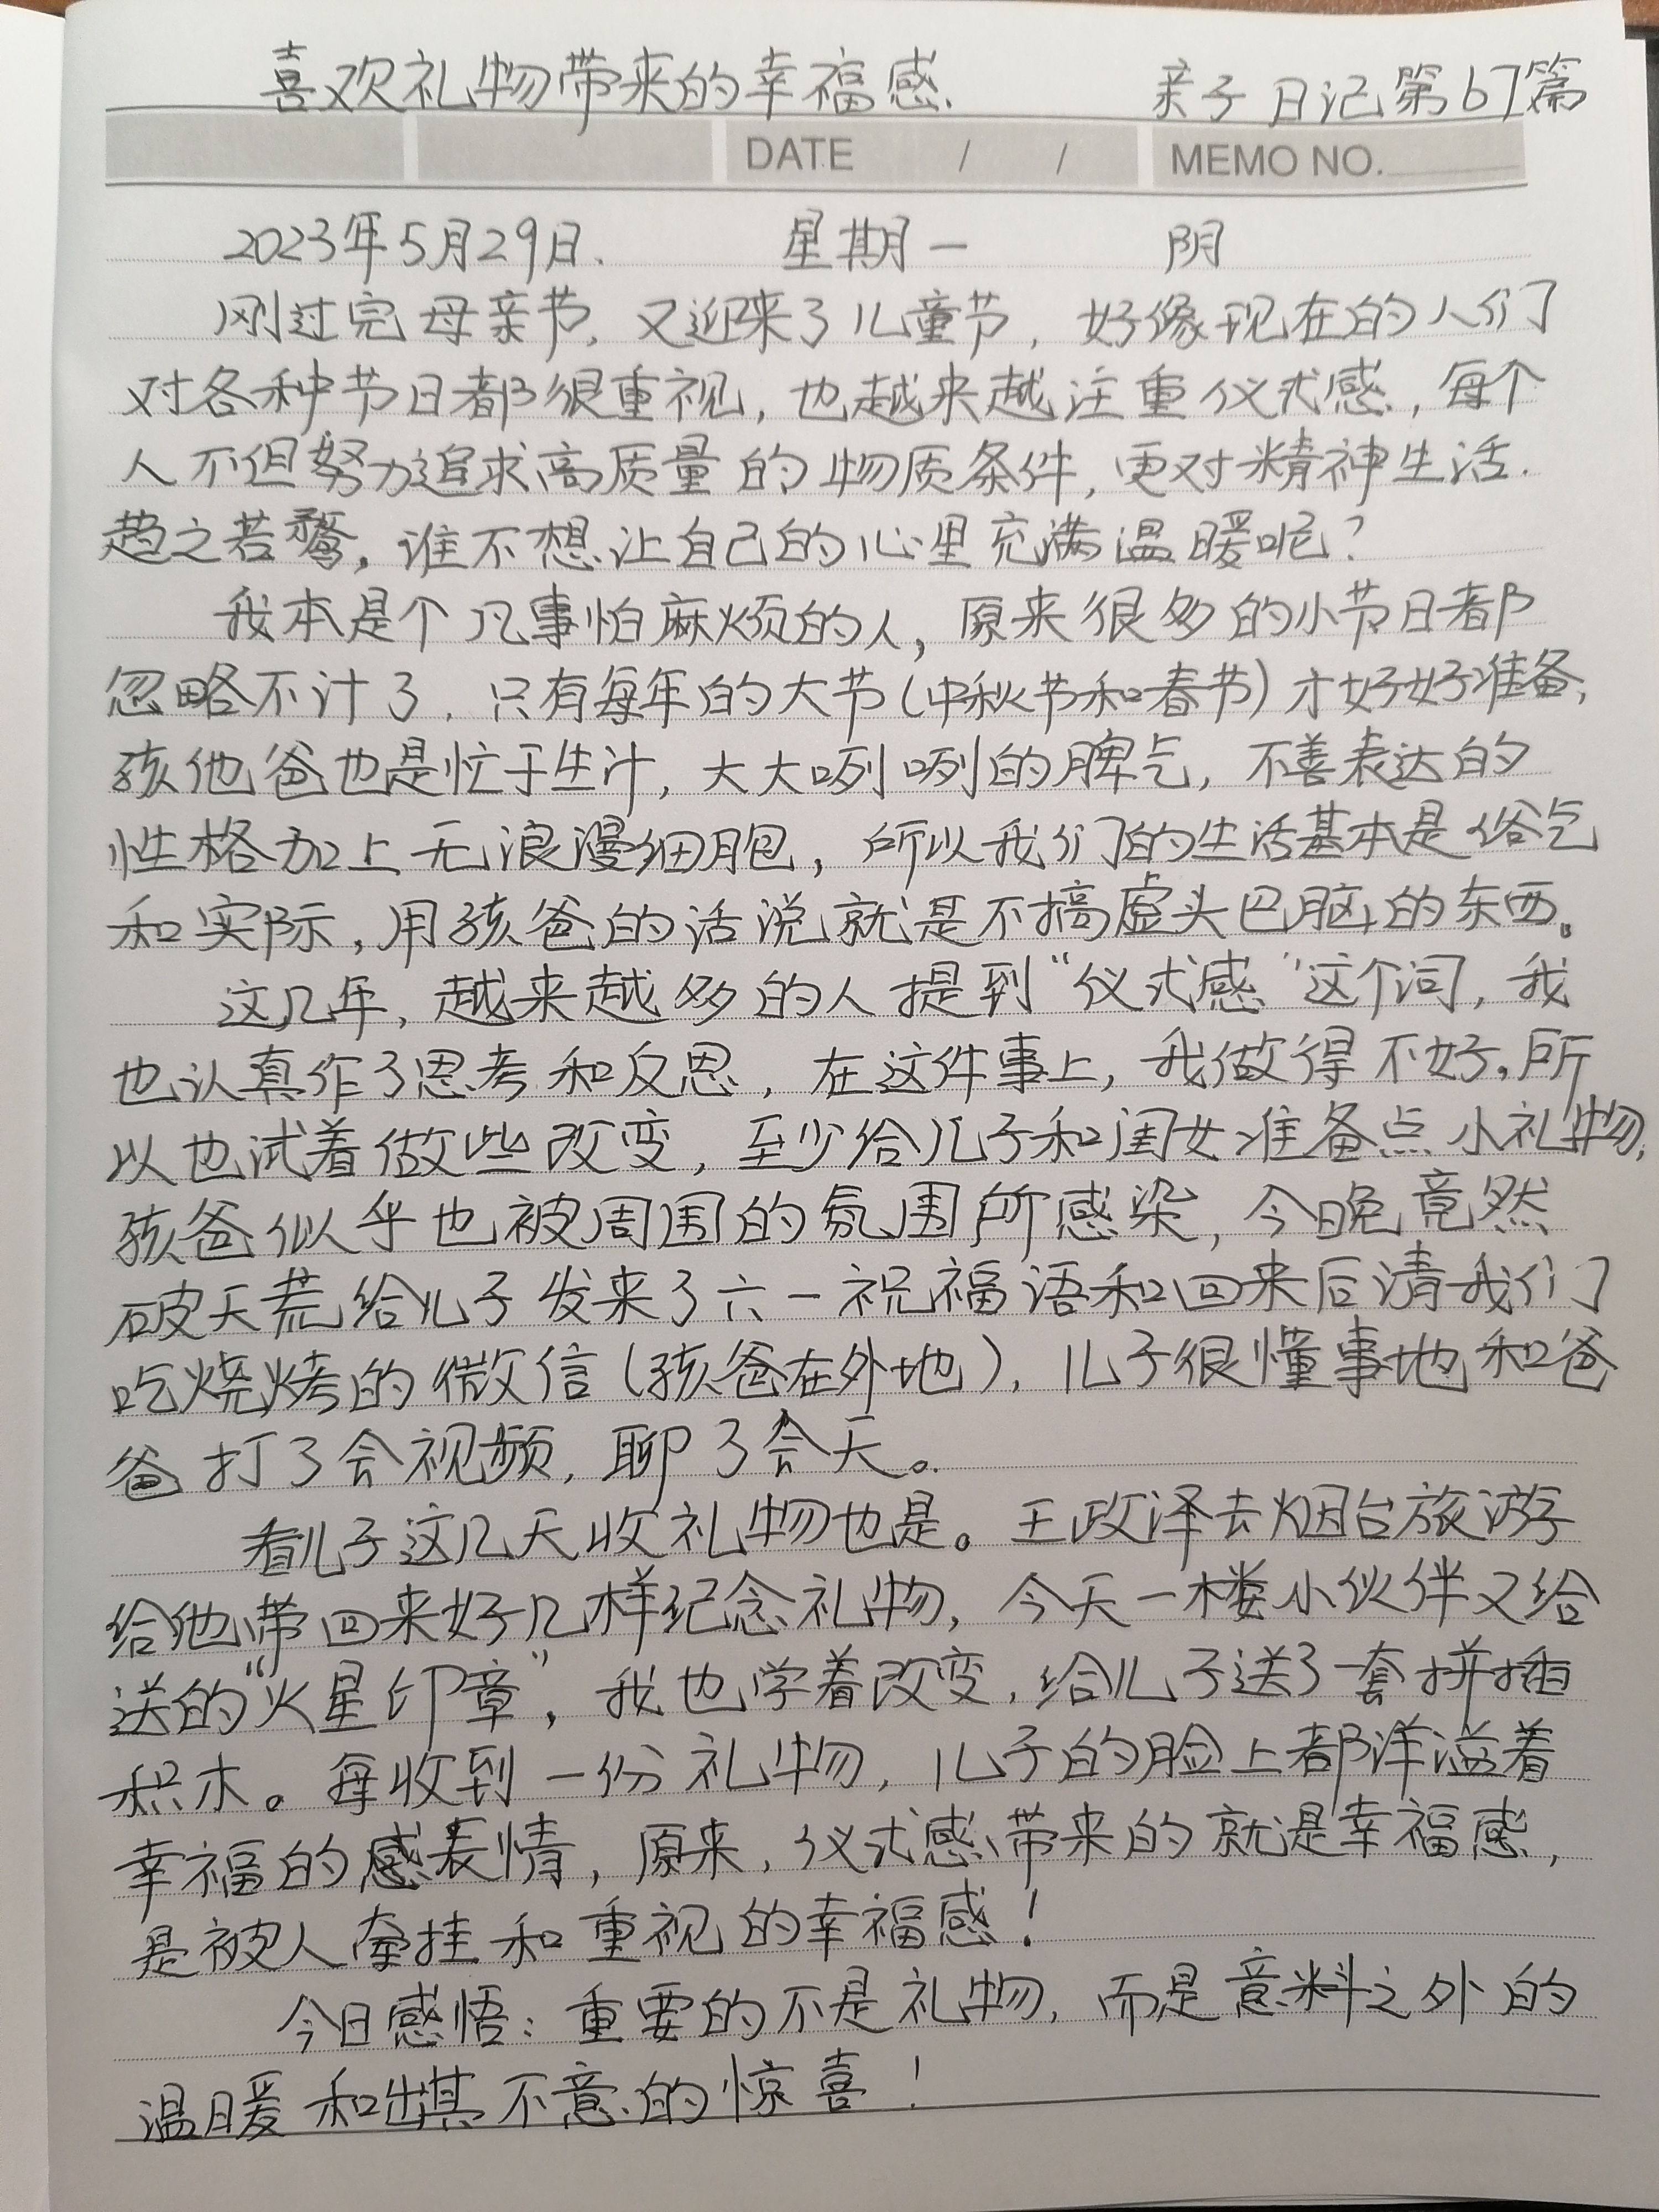 喜欢礼物带来的幸福感. 亲子日记第67篇
DATE / / MEMO NO.
2023年5月29日. 星期一 阴
刚过完母亲节,又迎来了儿童节,好像现在的人们
对各种节日都很重视,也越来越注重仪式感,每个
人不但努力追求高质量的物质条件,更对精神生活.
趋之若鹜,谁不想让自己的心里充满温暖呢?
我本是个凡事怕麻烦的人,原来很多的小节日都
忽略不计了,只有每年的大节(中秋节和春节)才好好准备,
孩他爸也是忙于生计,大大咧咧的脾气,不善表达的
性格加上无浪漫细胞,所以我们的生活基本是俗气
和实际,用孩爸的话说就是不搞虚头巴脑的东西。
这几年,越来越多的人提到“仪式感”这个词,我
也认真作了思考和反思,在这件事上,我做得不好,所
以也试着做些改变,至少给儿子和闺女准备点小礼物,
孩爸似乎也被周围的氛围所感染,今晚竟然
破天荒给儿子发来了六一祝福语和回来后请我们
吃烧烤的微信(孩爸在外地),儿子很懂事地和爸
爸打了会视频,聊了会天。
看儿子这几天收礼物也是。王政泽去烟台旅游
给他带回来好几样纪念礼物,今天一楼小伙伴又给
送的“火星印章”,我也学着改变,给儿子送了一套拼插
积木。每收到一份礼物,儿子的脸上都洋溢着
幸福的感表情,原来,仪式感带来的就是幸福感,
是被人牵挂和重视的幸福感!
今日感悟:重要的不是礼物,而是意料之外的
温暖和出其不意的惊喜!